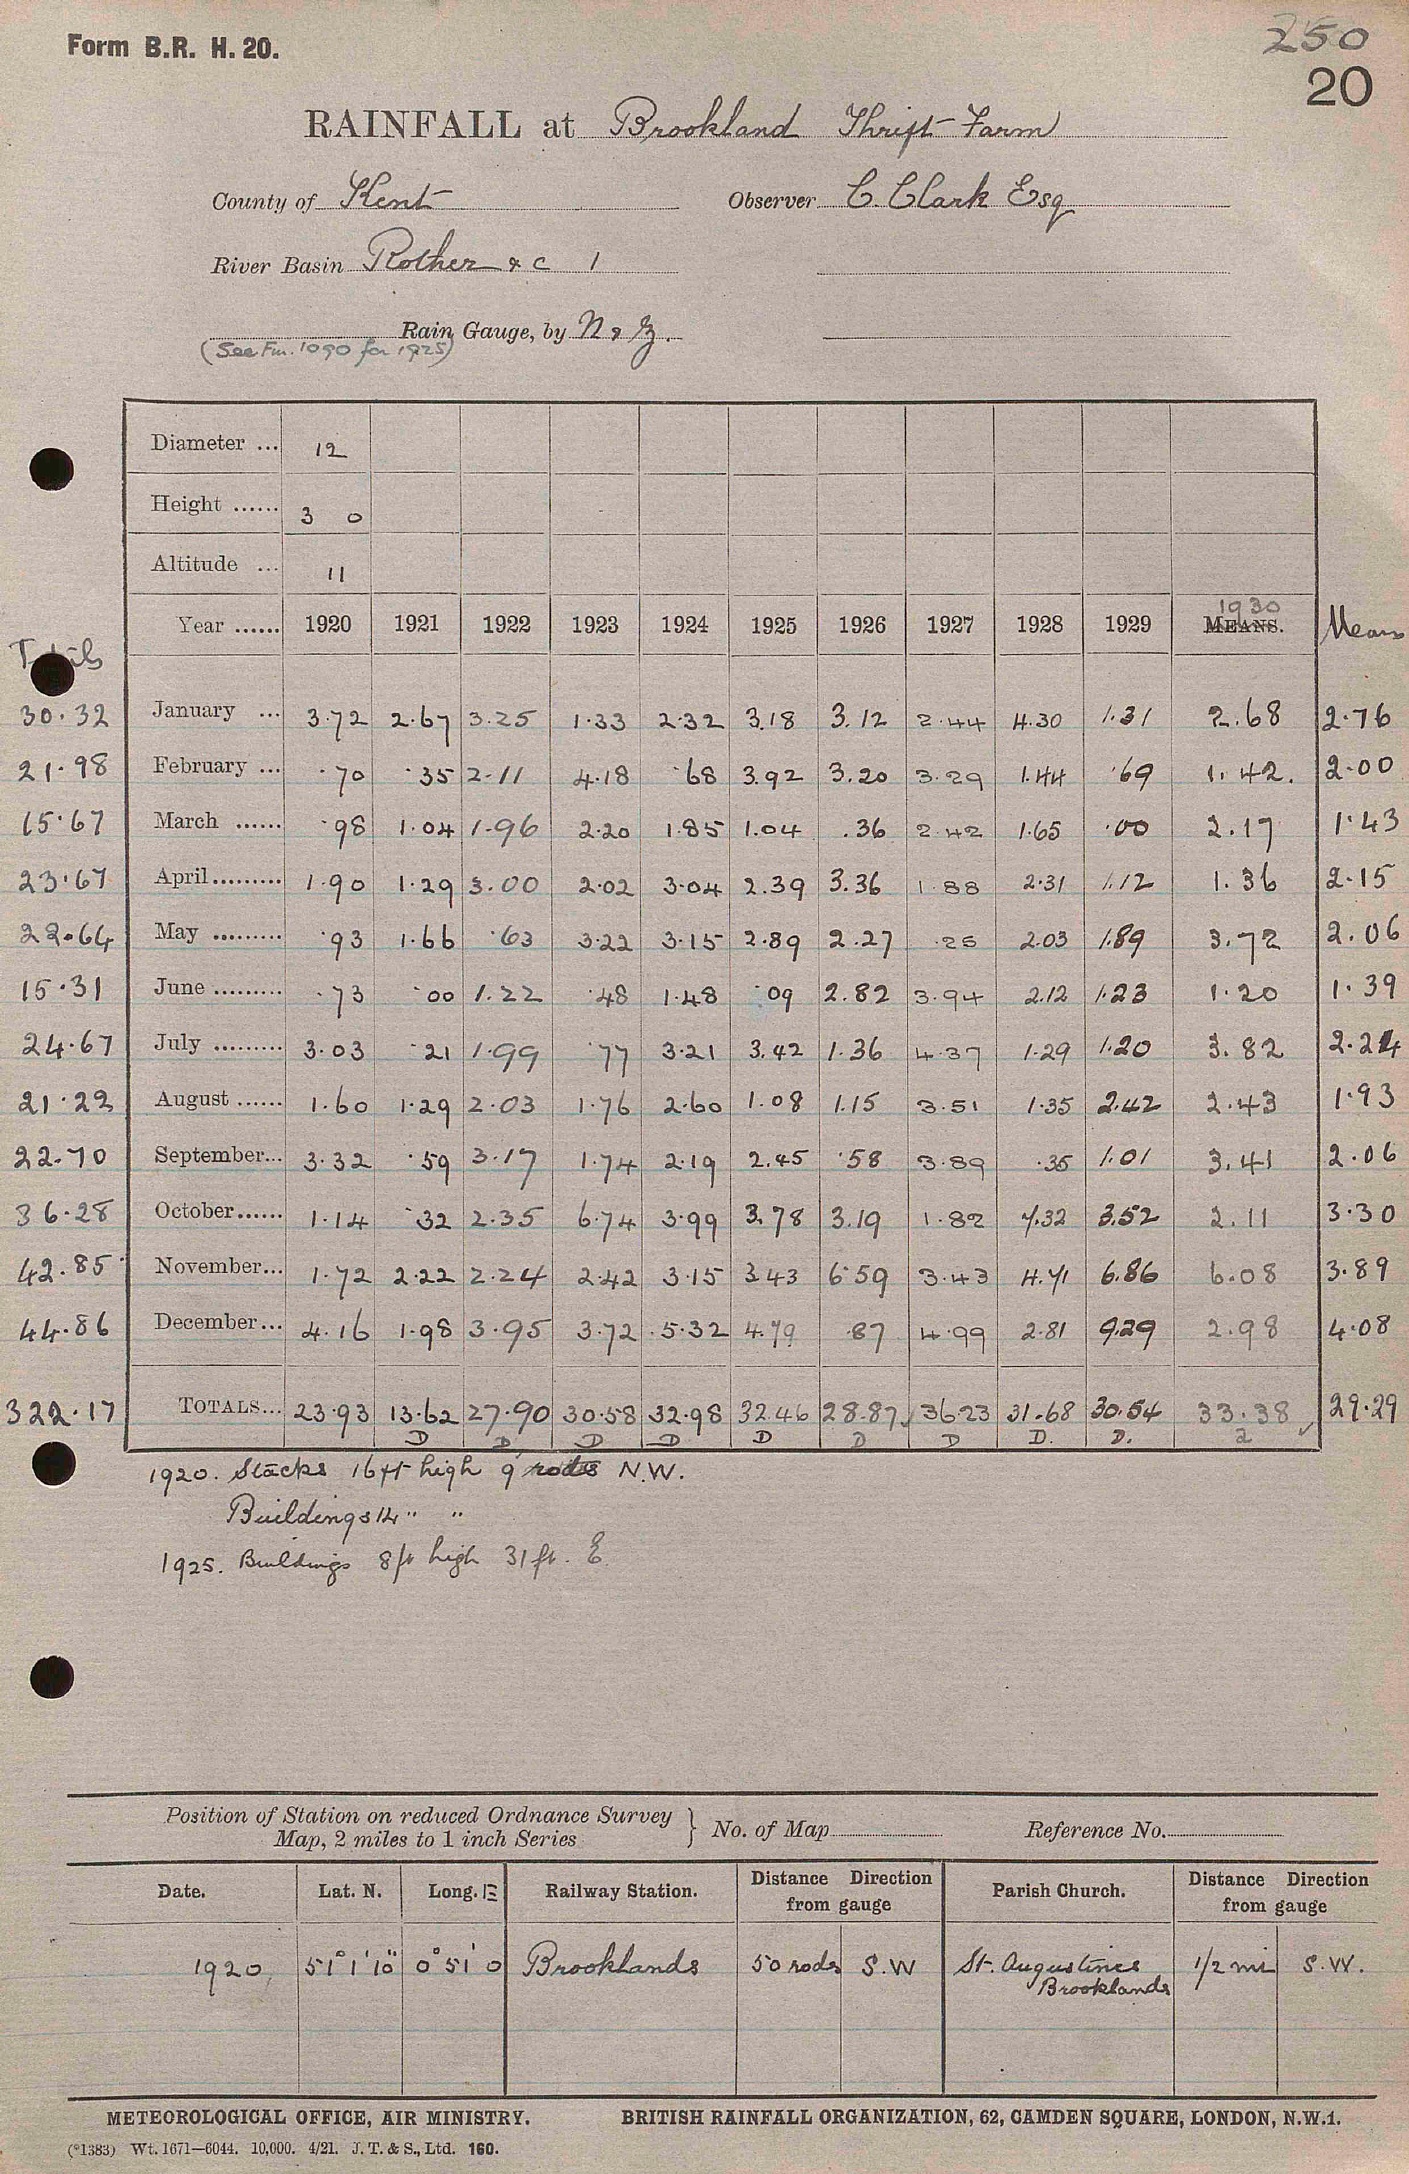 Form B.R. H. 20.
250
20
RAINFALL at Brookland Thrift Farm
County of Kent Observer C. Clark Esq
River Basin Rother & c 1
Rain Gauge, by N & Z.
(See Fm. 1090 for 1925)
Diameter ... 12
Height ...... 3 0
Altitude ... 11
Totals Year ...... 1920 1921 1922 1923 1924 1925 1926 1927 1928 1929 1930 MEANS. Means
30.32 January ... 3.72 2.67 3.25 1.33 2.32 3.18 3.12 2.44 4.30 1.31 2.68 2.76
21.98 February ... .70 .35 2.11 4.18 .68 3.92 3.20 3.29 1.44 .69 1.42. 2.00
15.67 March ...... .98 1.04 1.96 2.20 1.85 1.04 .36 2.42 1.65 .00 2.17 1.43
23.67 April......... 1.90 1.29 3.00 2.02 3.04 2.39 3.36 1.88 2.31 1.12 1.36 2.15
22.64 May ......... .93 1.66 .63 3.22 3.15 2.89 2.27 .25 2.03 1.89 3.72 2.06
15.31 June ......... .73 .00 1.22 .48 1.48 .09 2.82 3.94 2.12 1.23 1.20 1.39
24.67 July ......... 3.03 .21 1.99 .77 3.21 3.42 1.36 4.37 1.29 1.20 3.82 2.24
21.22 August ...... 1.60 1.29 2.03 1.76 2.60 1.08 1.15 3.51 1.35 2.42 2.43 1.93
22.70 September... 3.32 .59 3.17 1.74 2.19 2.45 .58 3.89 .35 1.01 3.41 2.06
36.28 October...... 1.14 .32 2.35 6.74 3.99 3.78 3.19 1.82 7.32 3.52 2.11 3.30
42.85 November... 1.72 2.22 2.24 2.42 3.15 3.43 6.59 3.43 4.71 6.86 6.08 3.89
44.86 December... 4.16 1.98 3.95 3.72 5.32 4.79 .87 4.99 2.81 9.29 2.98 4.08
322.17 TOTALS... 23.93 13.62 27.90 30.58 32.98 32.46 28.87 36.23 31.68 30.54 33.38 29.29
D D D D D D D D. D. 2
1920. Stacks 16 ft high 9 rods N.W.
Buildings 14 " "
1925. Buildings 8 ft high 31 ft. E.
Position of Station on reduced Ordnance Survey
Map, 2 miles to 1 inch Series } No. of Map Reference No.
Date. Lat. N. Long. E Railway Station. Distance Direction from gauge Parish Church. Distance Direction from gauge
1920 51° 1' 10" 0° 51' 0 Brooklands 50 rods S.W St. Augustines Brooklands 1/2 mi S.W.
METEOROLOGICAL OFFICE, AIR MINISTRY. BRITISH RAINFALL ORGANIZATION, 62, CAMDEN SQUARE, LONDON, N.W.1.
(*1383) Wt. 1671—6044. 10,000. 4/21. J. T. & S., Ltd. 160.